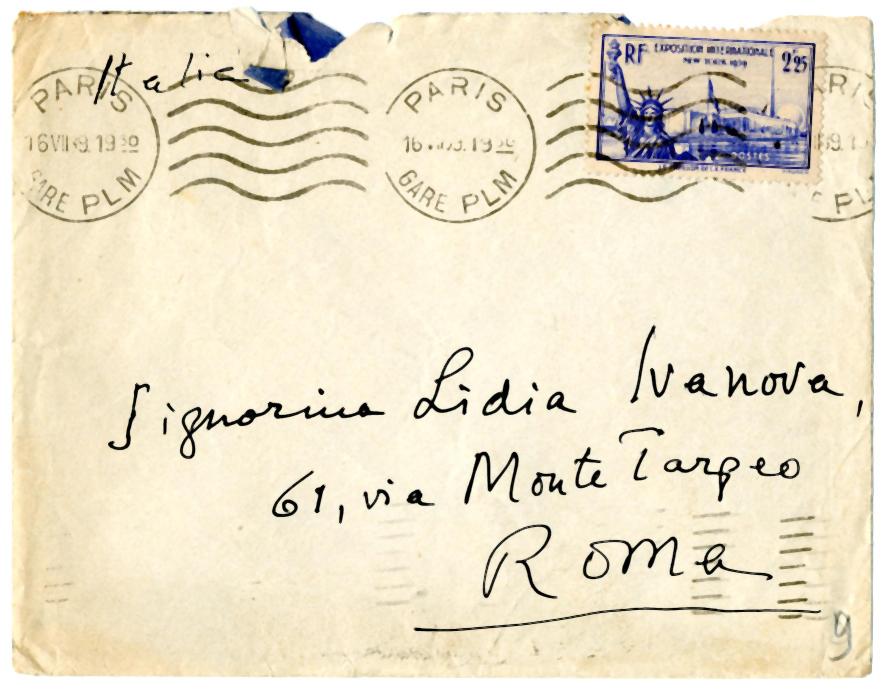 Italie
PARIS
16 VII 39. 19 30
GARE PLM
PARIS
GARE PLM
RF
EXPOSITION INTERNATIONALE
NEW YORK 1939
2F25
POSTES
Signorina Lidia Ivanova,
61, via Monte Tarpeo
ROMa
9